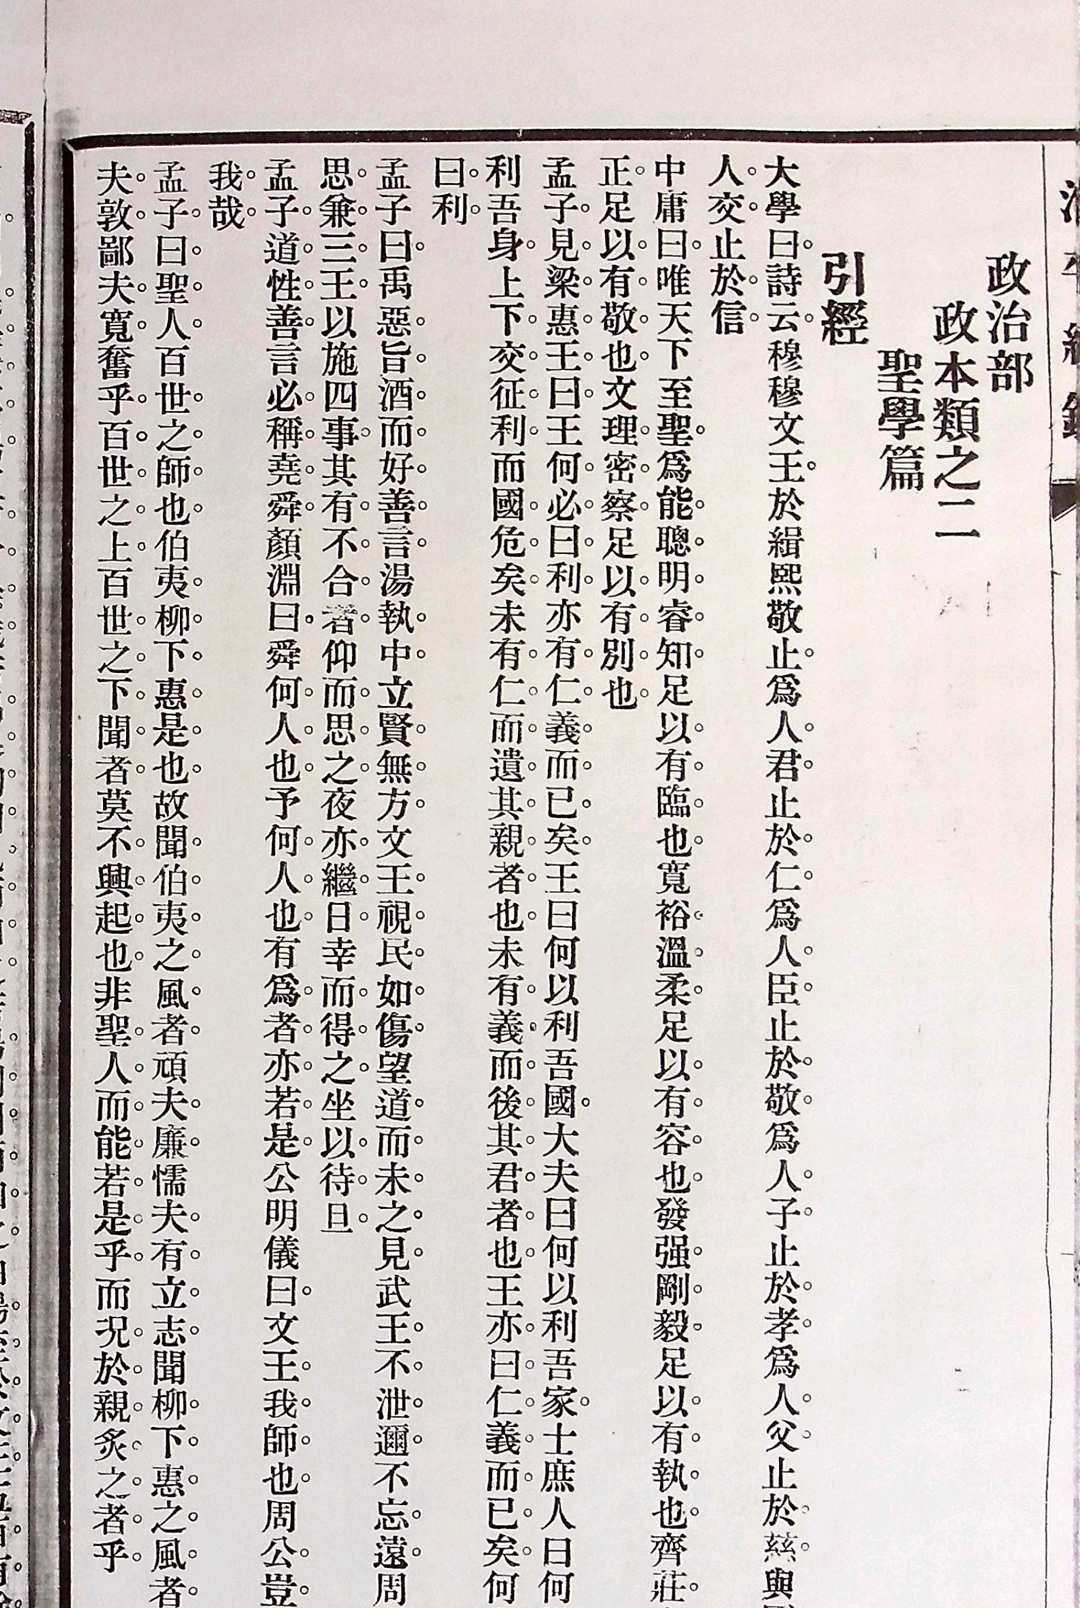 政治部
政本類之二
聖學篇
引經
大學曰詩云穆穆文王於緝熙敬止爲人君止於仁爲人臣止於敬爲人子止於孝爲人父止於慈與
人交止於信
中庸曰唯天下至聖爲能聰明睿知足以有臨也寬裕溫柔足以有容也發强剛毅足以有執也齊莊
正足以有敬也文理密察足以有別也
孟子見梁惠王曰王何必曰利亦有仁義而已矣王曰何以利吾國大夫曰何以利吾家士庶人曰何
利吾身上下交征利而國危矣未有仁而遺其親者也未有義而後其君者也王亦曰仁義而已矣何
曰利
孟子曰禹惡旨酒而好善言湯執中立賢無方文王視民如傷望道而未之見武王不泄邇不忘遠周
思兼三王以施四事其有不合者仰而思之夜亦繼日幸而得之坐以待旦
孟子道性善言必稱堯舜顏淵曰舜何人也予何人也有爲者亦若是公明儀曰文王我師也周公豈
我哉
孟子曰聖人百世之師也伯夷柳下惠是也故聞伯夷之風者頑夫廉懦夫有立志聞柳下惠之風者
夫敦鄙夫寬奮乎百世之上百世之下聞者莫不興起也非聖人而能若是乎而況於親炙之者乎